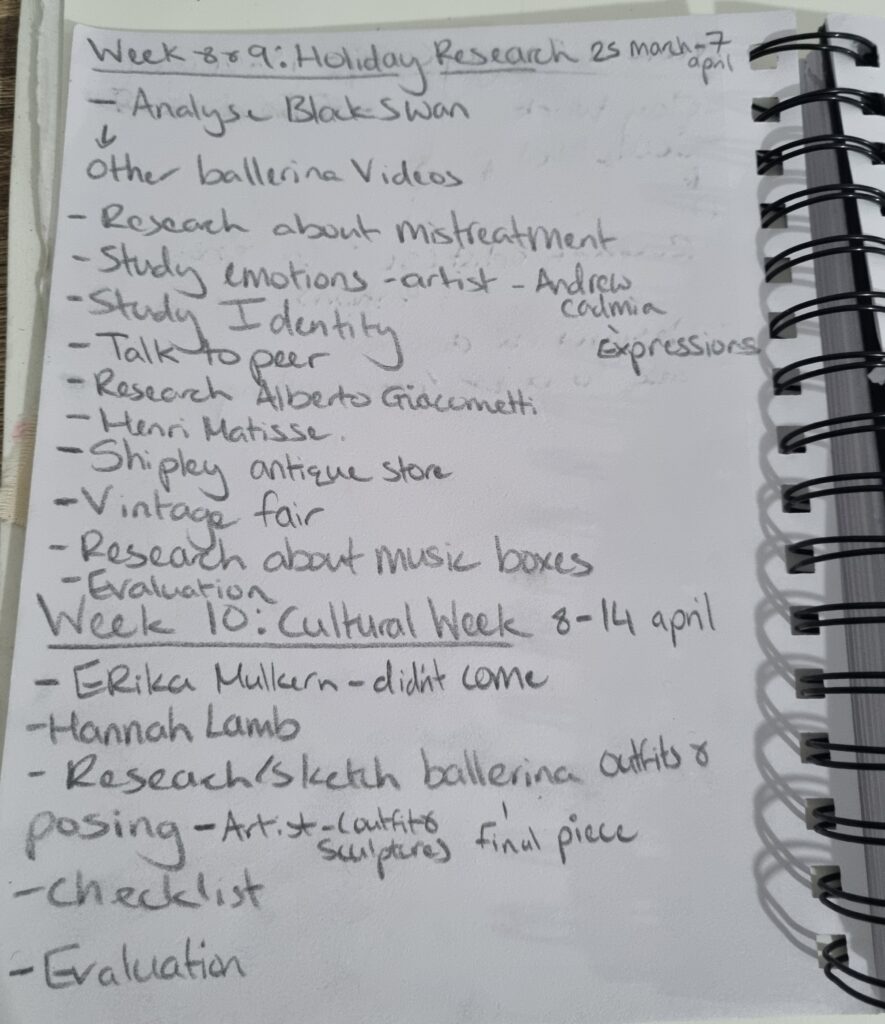 Week 8 & 9: Holiday Research 25 march - 7 april
- Analyse Black Swan
↓
Other ballerina Videos
- Reseach about mistreatment
- Study emotions - artist - Andrew cadmia
- Study Identity
Expressions
- Talk to peer
- Research Alberto Giacometti
- Henri Matisse.
- Shipley antique store
- Vintage fair
- Research about music boxes
- Evaluation
Week 10: Cultural Week 8-14 april
- ERika Mulkern - didn't come
- Hannah Lamb
- Reseach/sketch ballerina outfits &
posing - Artist - (outfit & sculptures final piece
- Checklist
- Evaluation